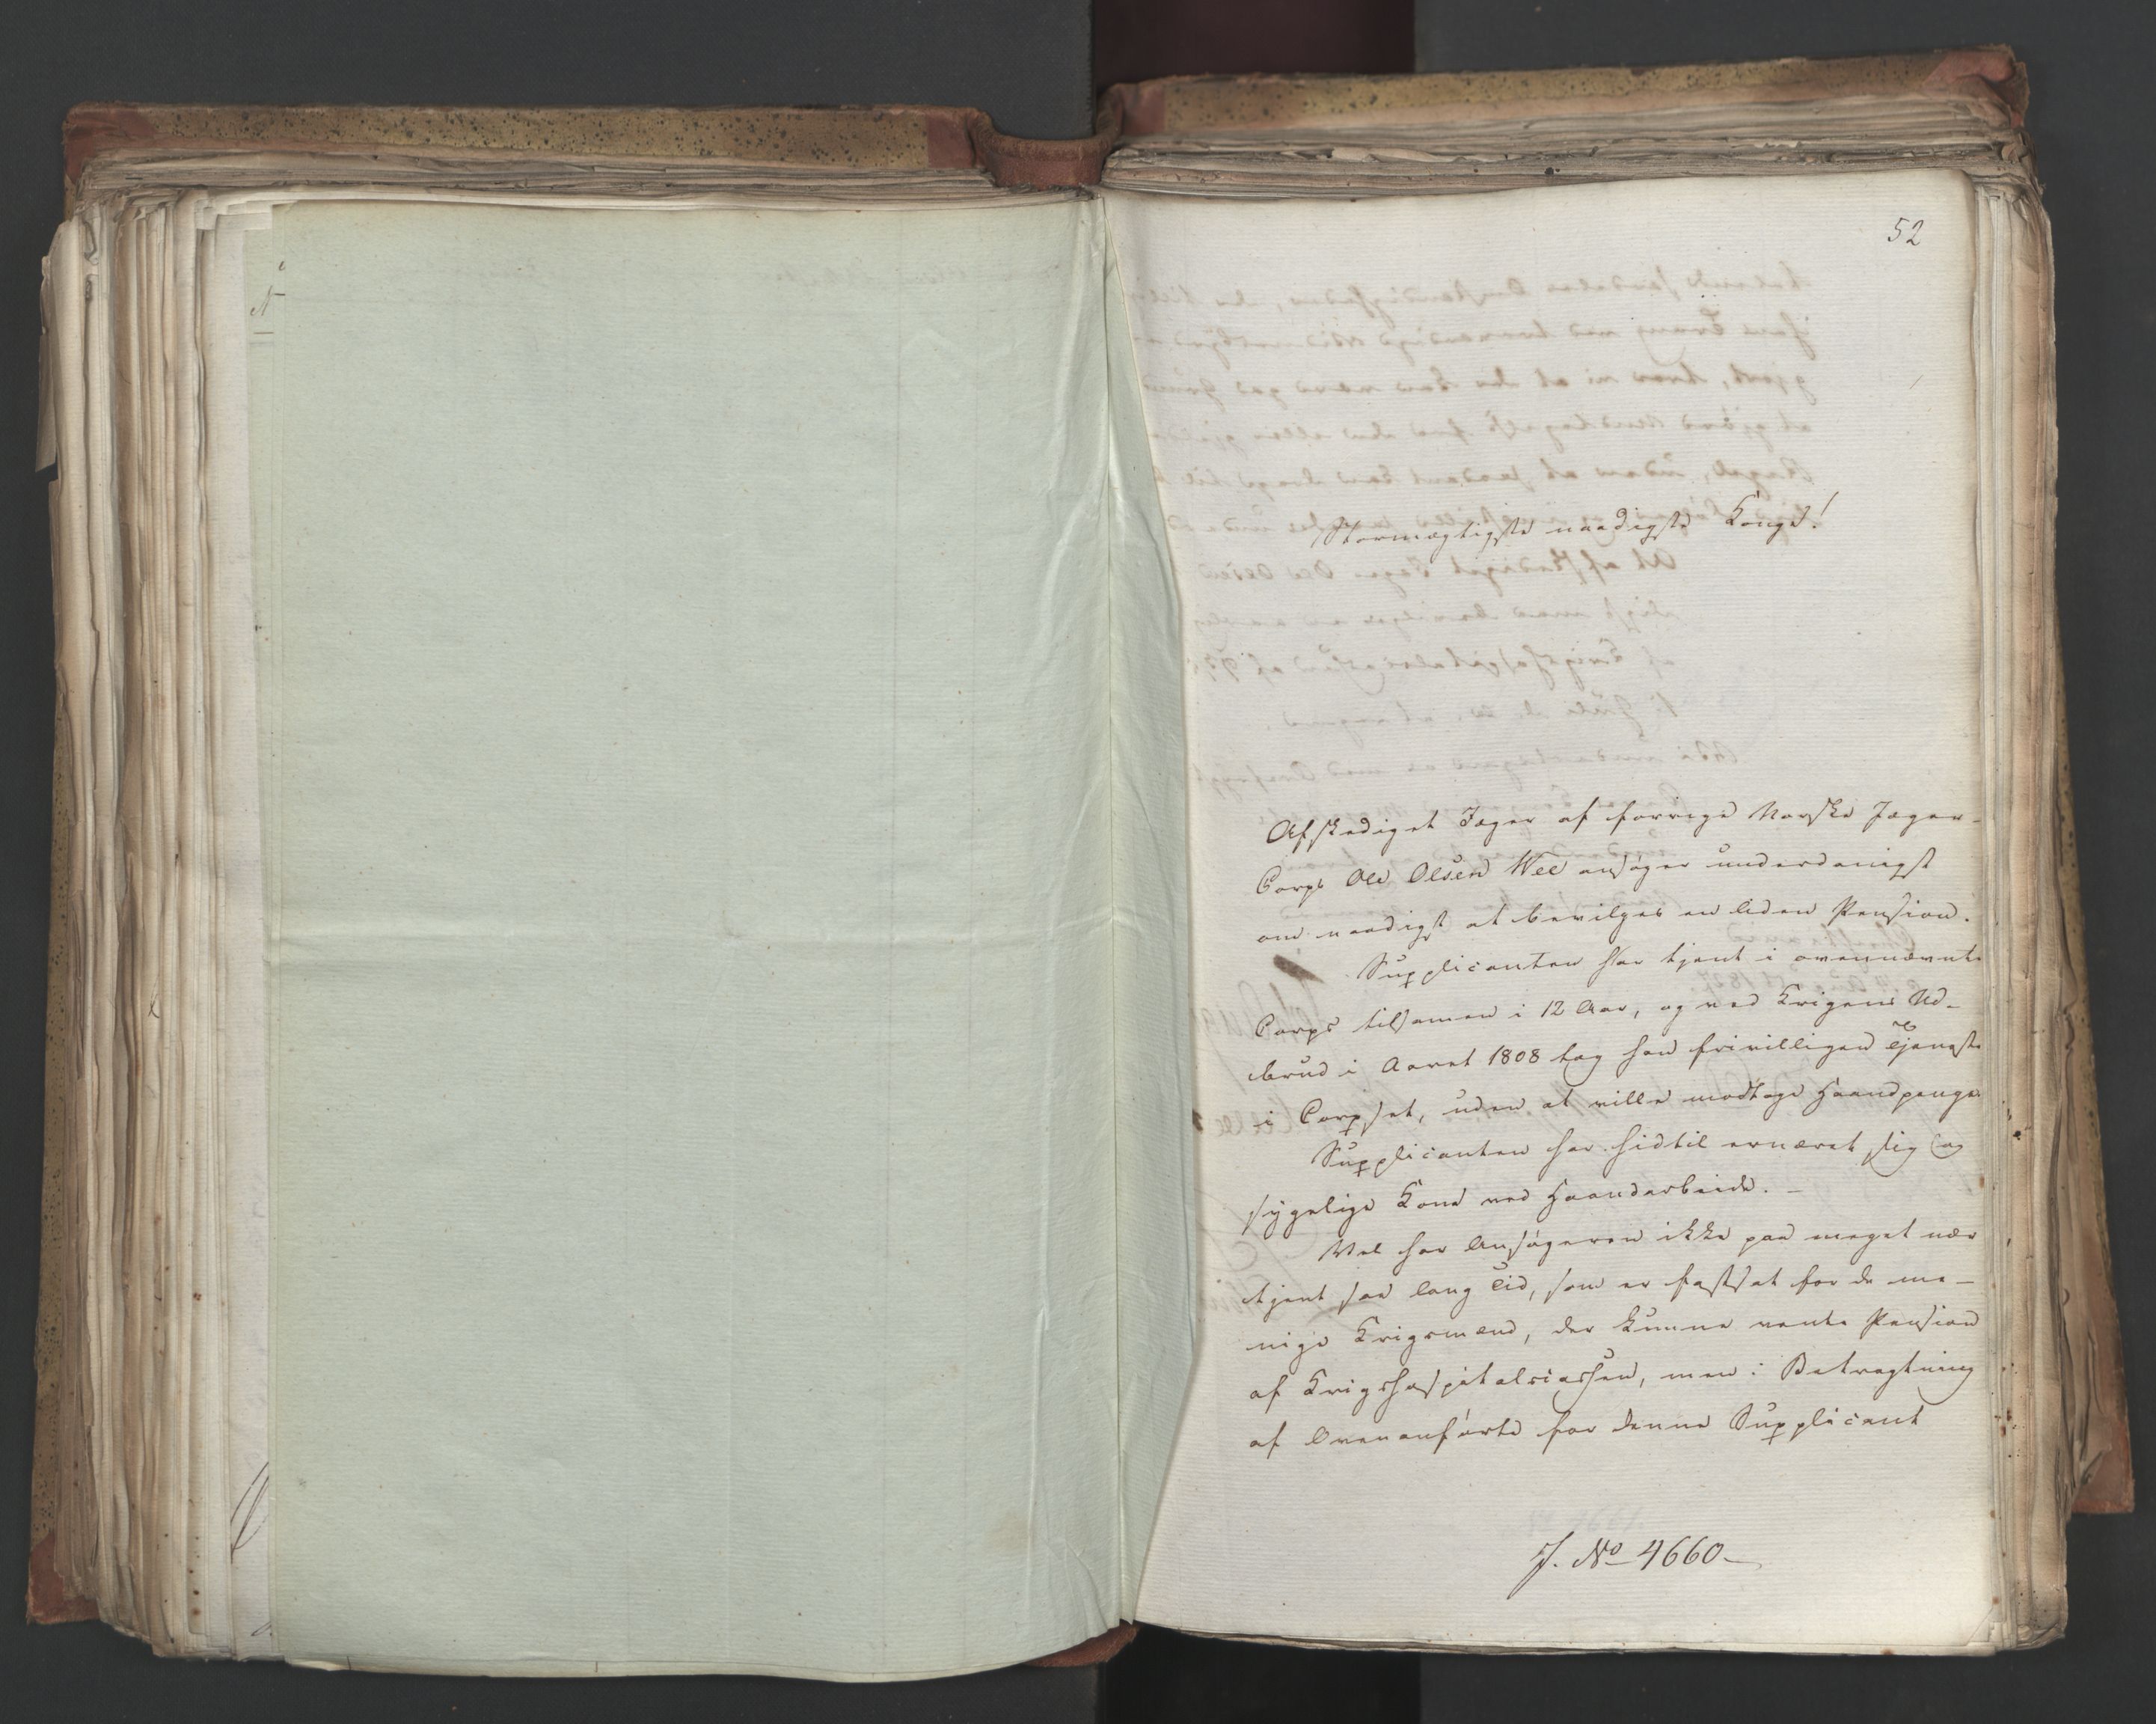 52
Stormægtigste naadigste Konge!
Afskediget Jæger af forrige Norske Jæger-
Corps Ole Olsen Wee ansøger underdanigst
om naadigst at bevilges en liden Pension.
Supplicanten har tjent i ovennævnte
Corps tilsamen i 12 Aar, og ved Krigens Ud-
brud i Aaret 1808 tog han frivilligen Tjeneste
i Corpset, uden at ville modtage Haandpenge.
Supplicanten har hidtil ernæret sig og
sygelige Kone ved Haandarbeide. -
Vel har Ansøgeren ikke paa meget nær
tjent saa lang Tid, som er fastsat for de me-
nige Krigsmænd, der kunne vente Pension
af Krigshospitalscassen, men i Betragtning
af Ovenanførte for denne Supplicant
J. No 4660